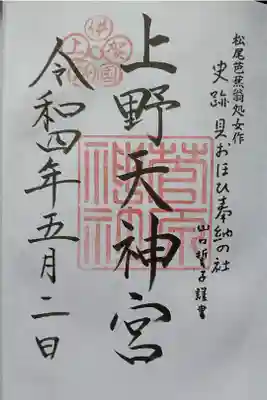 松尾芭蕉翁処女作
史跡 貝おほひ奉納の社
山口誓子謹書
上野天神宮
令和四年五月二日